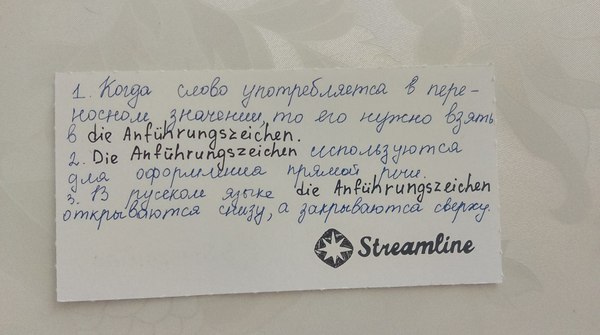 1. Когда слово употребляется в пере-
носном значении, то его нужно взять
в die Anführungszeichen.
2. Die Anführungszeichen используются
для оформления прямой речи.
3. В русском языке die Anführungszeichen
открываются снизу, а закрываются сверху.
Streamline